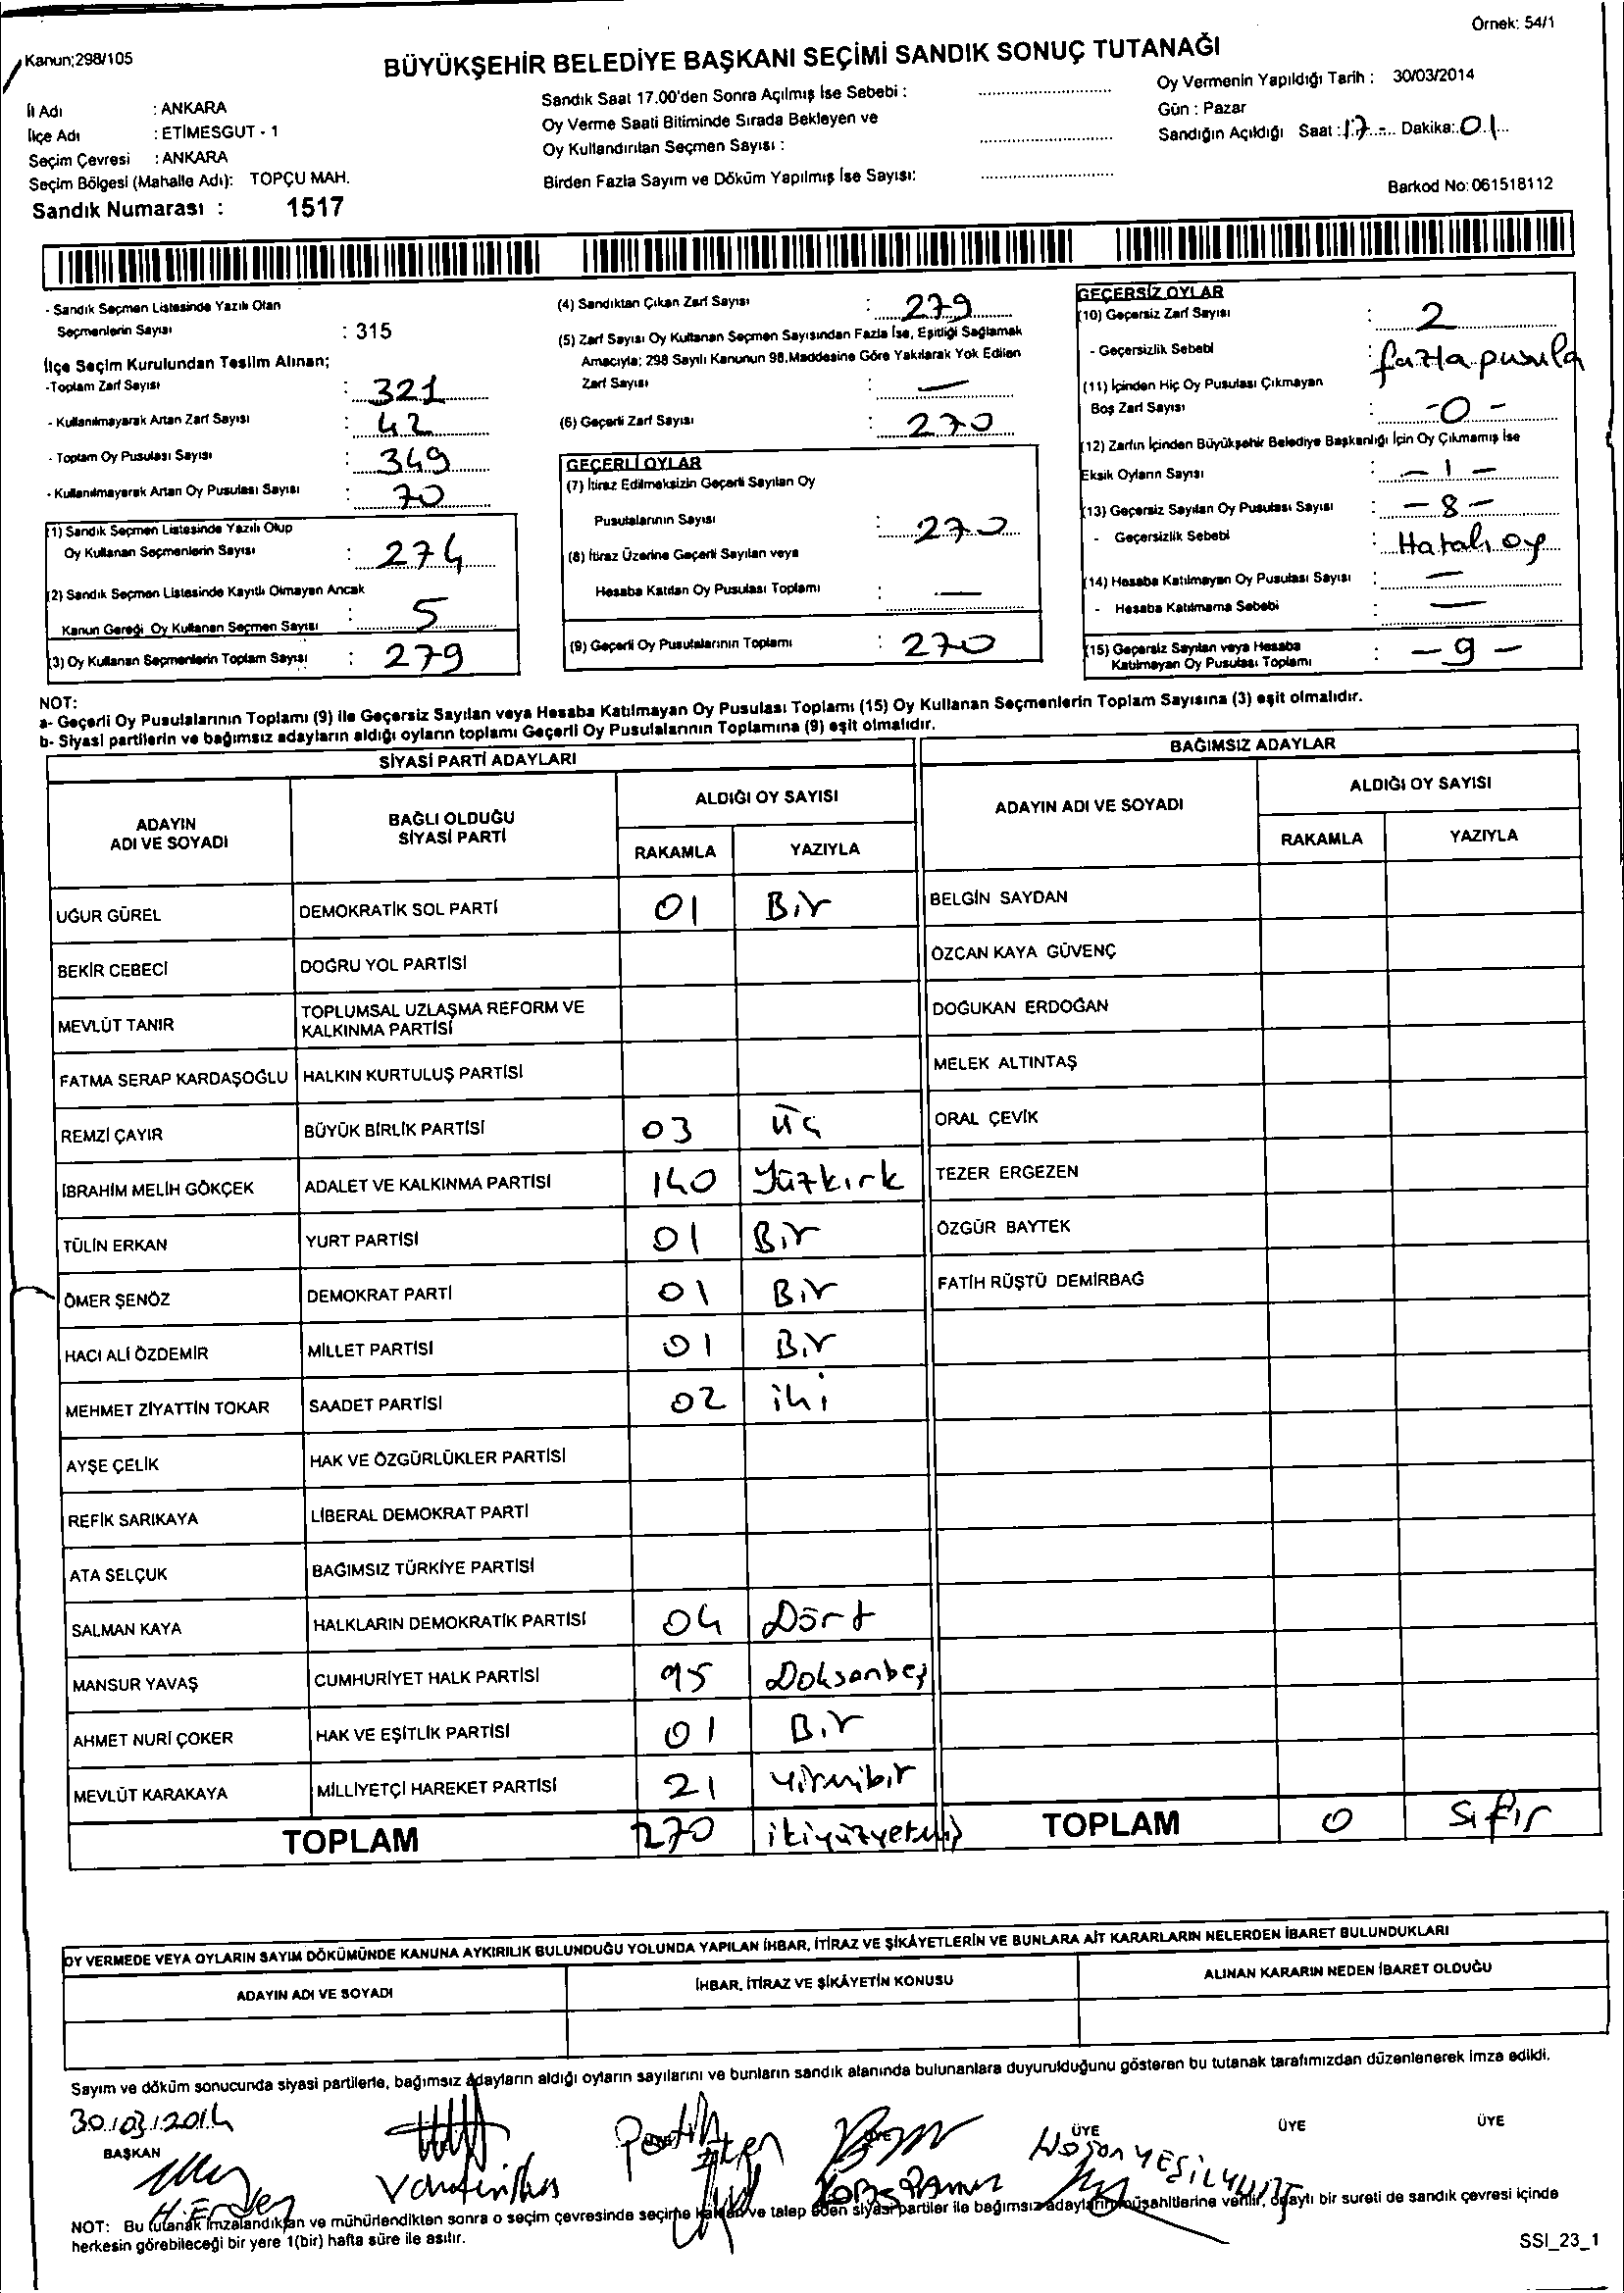 Örnek: 54/1
Kanun:298/105
BÜYÜKŞEHİR BELEDİYE BAŞKANI SEÇİMİ SANDIK SONUÇ TUTANAĞI
İl Adı : ANKARA
İlçe Adı : ETİMESGUT - 1
Seçim Çevresi : ANKARA
Seçim Bölgesi (Mahalle Adı): TOPÇU MAH.
Sandık Numarası : 1517
Sandık Saat 17.00'den Sonra Açılmış İse Sebebi :
Oy Verme Saati Bitiminde Sırada Bekleyen ve
Oy Kullandırılan Seçmen Sayısı :
Birden Fazla Sayım ve Döküm Yapılmış İse Sayısı:
Oy Vermenin Yapıldığı Tarih : 30/03/2014
Gün : Pazar
Sandığın Açıldığı Saat : 17 Dakika: 01
Barkod No: 061518112
- Sandık Seçmen Listesinde Yazılı Olan
Seçmenlerin Sayısı : 315
İlçe Seçim Kurulundan Teslim Alınan;
-Toplam Zarf Sayısı : 321
- Kullanılmayarak Artan Zarf Sayısı : 42
- Toplam Oy Pusulası Sayısı : 349
- Kullanılmayarak Artan Oy Pusulası Sayısı : 70
(1) Sandık Seçmen Listesinde Yazılı Olup
Oy Kullanan Seçmenlerin Sayısı : 274
(2) Sandık Seçmen Listesinde Kayıtlı Olmayan Ancak
Kanun Gereği Oy Kullanan Seçmen Sayısı : 5
(3) Oy Kullanan Seçmenlerin Toplam Sayısı : 279
(4) Sandıktan Çıkan Zarf Sayısı : 279
(5) Zarf Sayısı Oy Kullanan Seçmen Sayısından Fazla İse, Eşitliği Sağlamak
Amacıyla; 298 Sayılı Kanunun 98.Maddesine Göre Yakılarak Yok Edilen
Zarf Sayısı : —
(6) Geçerli Zarf Sayısı : 270
GEÇERLİ OYLAR
(7) İtiraz Edilmeksizin Geçerli Sayılan Oy
Pusulalarının Sayısı : 270
(8) İtiraz Üzerine Geçerli Sayılan veya
Hesaba Katılan Oy Pusulası Toplamı : —
(9) Geçerli Oy Pusulalarının Toplamı : 270
GEÇERSİZ OYLAR
(10) Geçersiz Zarf Sayısı : 2
- Geçersizlik Sebebi : fazla pusula
(11) İçinden Hiç Oy Pusulası Çıkmayan
Boş Zarf Sayısı : -0-
(12) Zarfın İçinden Büyükşehir Belediye Başkanlığı İçin Oy Çıkmamış İse
Eksik Oyların Sayısı : -1-
(13) Geçersiz Sayılan Oy Pusulası Sayısı : -8-
- Geçersizlik Sebebi : Hatalı oy
(14) Hesaba Katılmayan Oy Pusulası Sayısı : —
- Hesaba Katılmama Sebebi : —
(15) Geçersiz Sayılan veya Hesaba
Katılmayan Oy Pusulası Toplamı : -9-
NOT:
a- Geçerli Oy Pusulalarının Toplamı (9) ile Geçersiz Sayılan veya Hesaba Katılmayan Oy Pusulası Toplamı (15) Oy Kullanan Seçmenlerin Toplam Sayısına (3) eşit olmalıdır.
b- Siyasi partilerin ve bağımsız adayların aldığı oyların toplamı Geçerli Oy Pusulalarının Toplamına (9) eşit olmalıdır.
SİYASİ PARTİ ADAYLARI
ADAYIN
ADI VE SOYADI
BAĞLI OLDUĞU
SİYASİ PARTİ
ALDIĞI OY SAYISI
RAKAMLA YAZIYLA
UĞUR GÜREL DEMOKRATİK SOL PARTİ 01 Bir
BEKİR CEBECİ DOĞRU YOL PARTİSİ
MEVLÜT TANIR TOPLUMSAL UZLAŞMA REFORM VE
KALKINMA PARTİSİ
FATMA SERAP KARDAŞOĞLU HALKIN KURTULUŞ PARTİSİ
REMZİ ÇAYIR BÜYÜK BİRLİK PARTİSİ 03 üç
İBRAHİM MELİH GÖKÇEK ADALET VE KALKINMA PARTİSİ 140 Yüzkırk
TÜLİN ERKAN YURT PARTİSİ 01 Bir
ÖMER ŞENÖZ DEMOKRAT PARTİ 01 Bir
HACI ALİ ÖZDEMİR MİLLET PARTİSİ 01 Bir
MEHMET ZİYATTİN TOKAR SAADET PARTİSİ 02 iki
AYŞE ÇELİK HAK VE ÖZGÜRLÜKLER PARTİSİ
REFİK SARIKAYA LİBERAL DEMOKRAT PARTİ
ATA SELÇUK BAĞIMSIZ TÜRKİYE PARTİSİ
SALMAN KAYA HALKLARIN DEMOKRATİK PARTİSİ 04 Dört
MANSUR YAVAŞ CUMHURİYET HALK PARTİSİ 95 Doksanbeş
AHMET NURİ ÇOKER HAK VE EŞİTLİK PARTİSİ 01 Bir
MEVLÜT KARAKAYA MİLLİYETÇİ HAREKET PARTİSİ 21 Yirmibir
TOPLAM 270 ikiyüzyetmiş
BAĞIMSIZ ADAYLAR
ADAYIN ADI VE SOYADI
ALDIĞI OY SAYISI
RAKAMLA YAZIYLA
BELGİN SAYDAN
ÖZCAN KAYA GÜVENÇ
DOĞUKAN ERDOĞAN
MELEK ALTINTAŞ
ORAL ÇEVİK
TEZER ERGEZEN
ÖZGÜR BAYTEK
FATİH RÜŞTÜ DEMİRBAĞ
TOPLAM 0 Sıfır
OY VERMEDE VEYA OYLARIN SAYIM DÖKÜMÜNDE KANUNA AYKIRILIK BULUNDUĞU YOLUNDA YAPILAN İHBAR, İTİRAZ VE ŞİKÂYETLERİN VE BUNLARA AİT KARARLARIN NELERDEN İBARET BULUNDUKLARI
ADAYIN ADI VE SOYADI İHBAR, İTİRAZ VE ŞİKÂYETİN KONUSU ALINAN KARARIN NEDEN İBARET OLDUĞU
Sayım ve döküm sonucunda siyasi partilerle, bağımsız adayların aldığı oyların sayılarını ve bunların sandık alanında bulunanlara duyurulduğunu gösteren bu tutanak tarafımızdan düzenlenerek imza edildi.
30/03/2014
BAŞKAN
ÜYE ÜYE ÜYE
NOT: Bu tutanak imzalandıktan ve mühürlendikten sonra o seçim çevresinde seçime katılan ve talep eden siyasi partiler ile bağımsız adayların müşahitlerine verilir, onaylı bir sureti de sandık çevresi içinde
herkesin görebileceği bir yere 1(bir) hafta süre ile asılır.
SSI_23_1